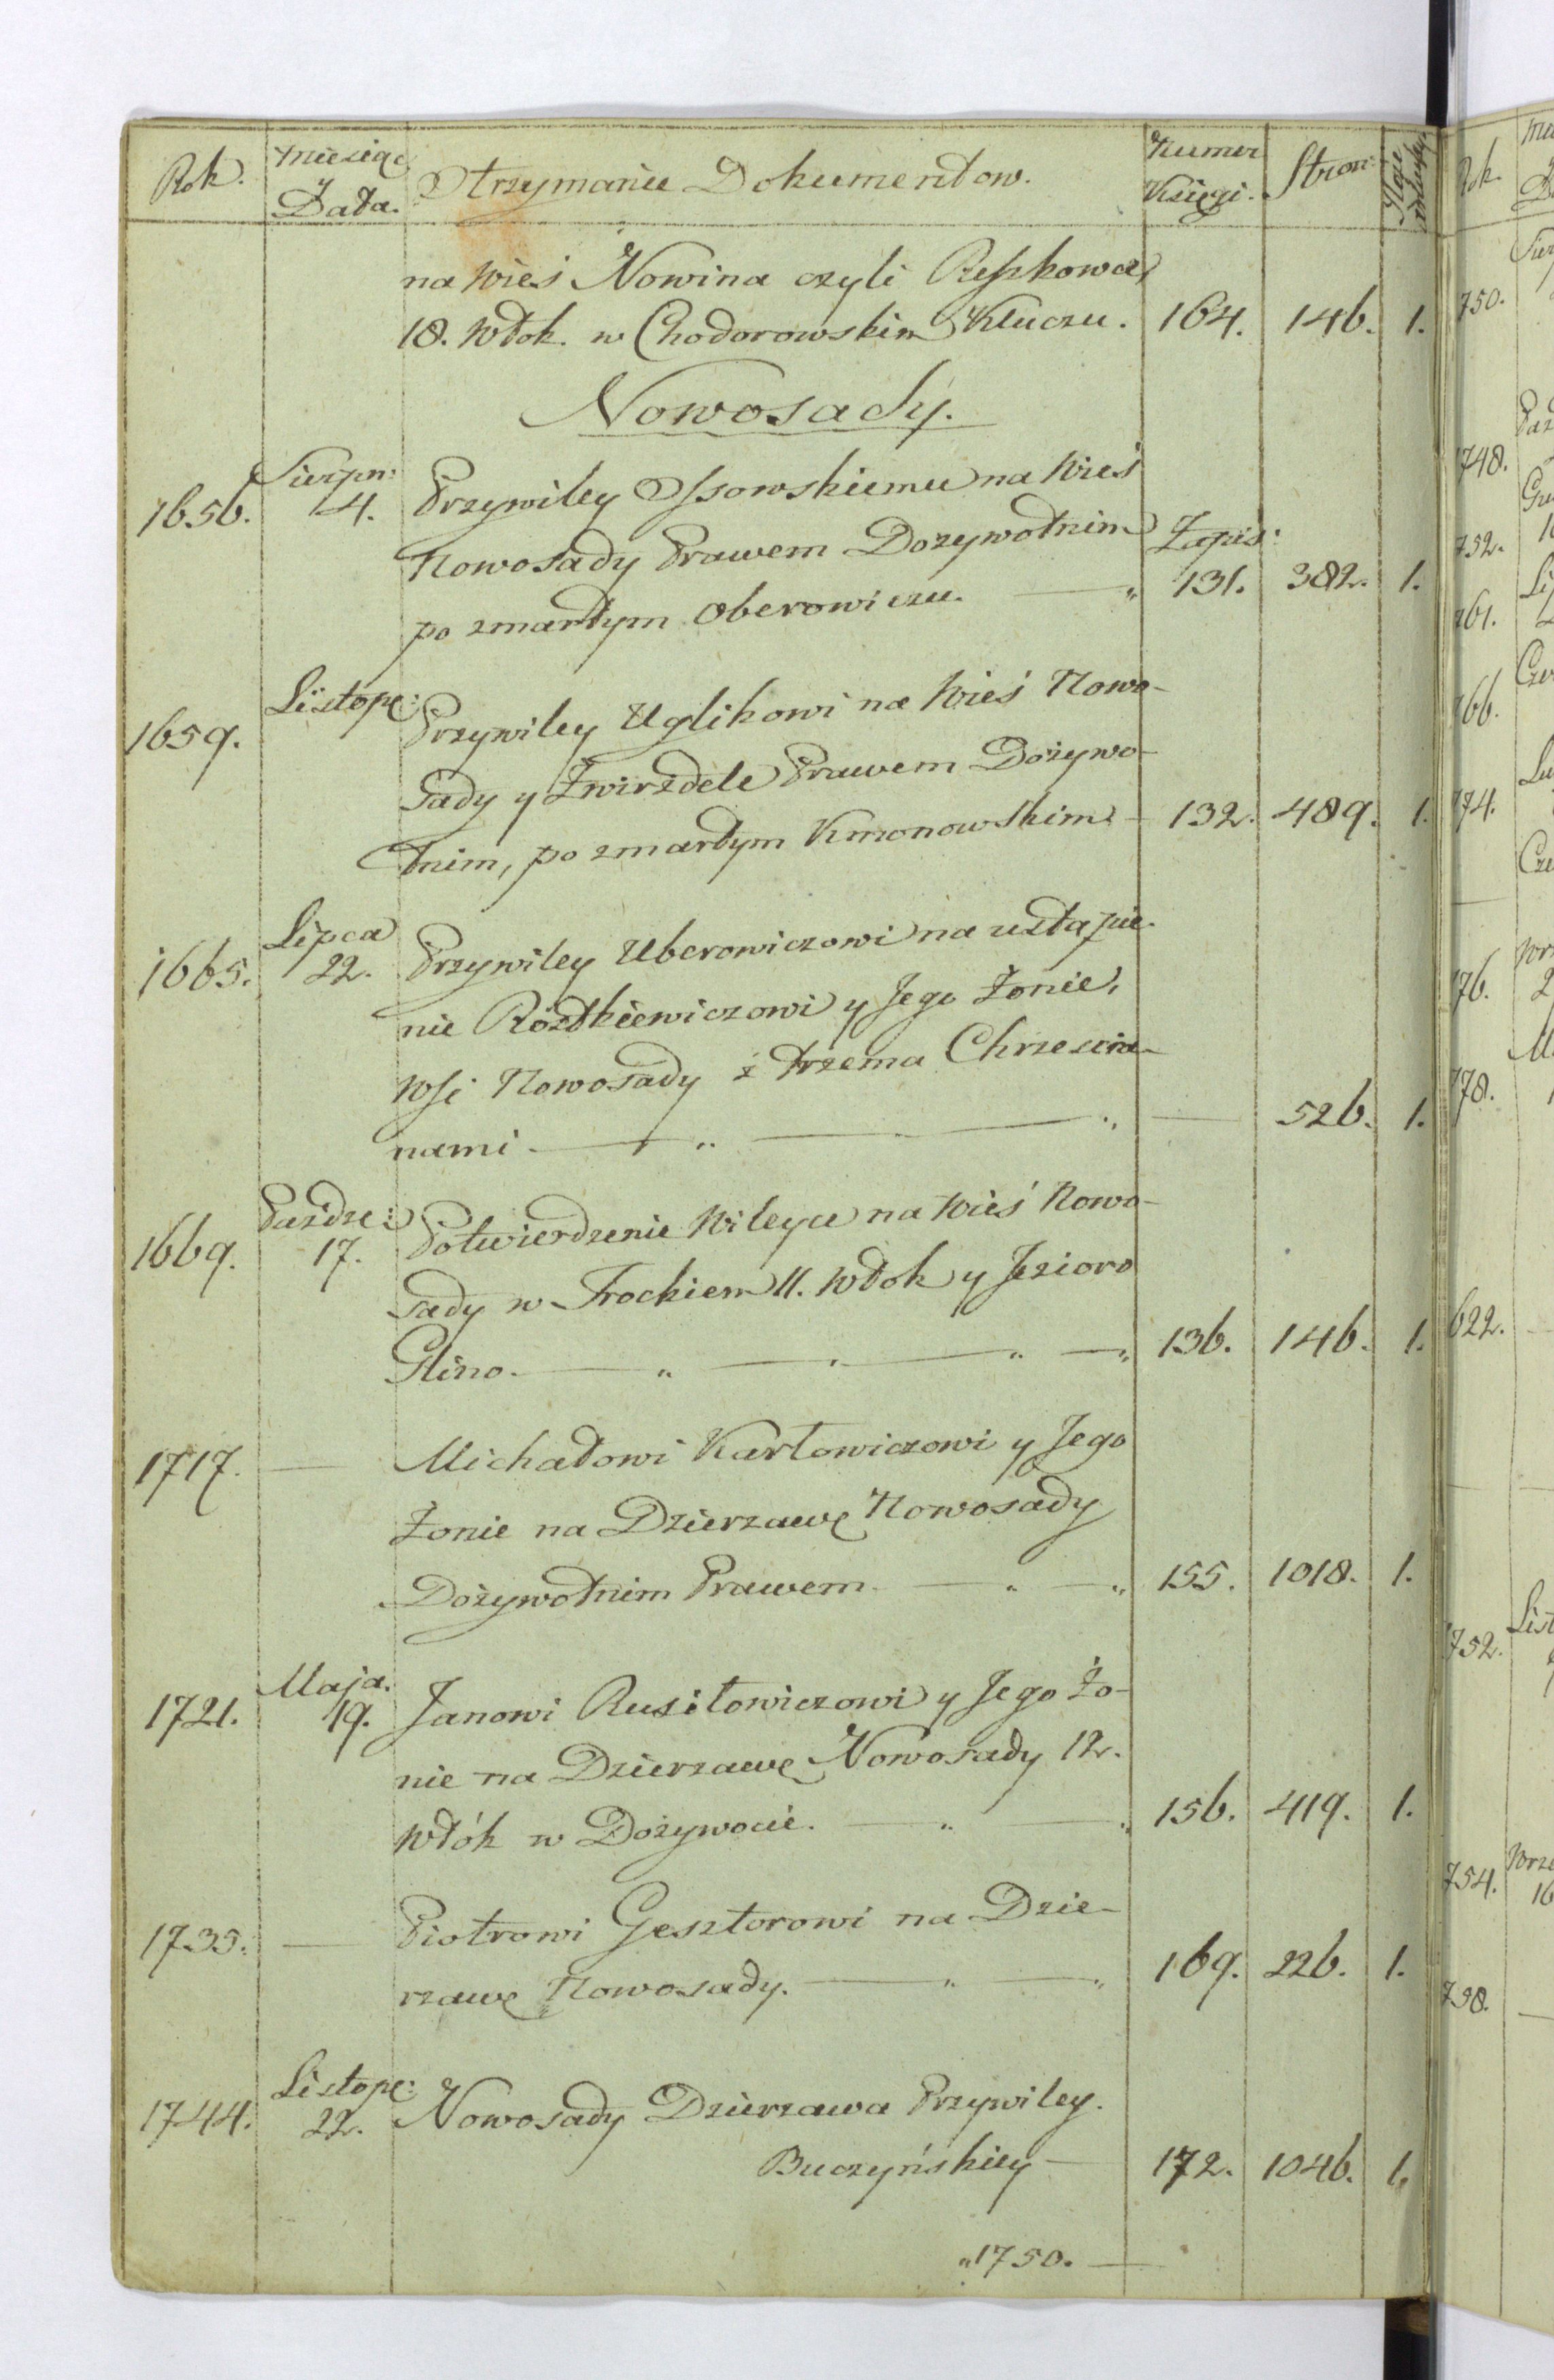 Rok. Miesiąc y Data. Otrzymanie Dokumentow. Numer Księgi. Stron:
na Wieś Nowina czyli Reszkowce
18. Włok. w Chodorowskim Kluczu. 164. 146. 1.
Nowosady.
1656. Sierpn: 4. Przywiley Ossowskiemu na Wieś
Nowosady Prawem Dozywotnim Zapis:
po zmarłym Oberowiczu. — „ 131. 382. 1.
1659. Listopa: Przywiley Uglikowi na Wieś Nowo-
sady y Zwirzdele Prawem Dożywo-
tnim, po zmarłym Kmonowskim - 132. 489. 1.
1665. Lipca 22. Przywiley Uberowiczowi na ustąpie-
nie Rozdkiewiczowi y Jego Żonie,
Wsi Nowosady z trzema Chrzescia-
nami — „ — „ — 526. 1.
1669. Paźdz: 17. Potwierdzenie Wileyce na Wieś Nowo-
sady w Trockiem 11. Włok y Jezioro
Glino. — „ — „ — „ — „ 136. 146. 1.
1717. — Michałowi Karłowiczowi y Jego
Żonie na Dzierzawę Nowosady
Dożywotnim Prawem. — „ — „ 155. 1018. 1.
1721. Maja. 19. Janowi Rusiłowiczowi y Jego Żo-
nie na Dzierzawę Nowosady 12.
Włók w Dożywocie. — „ — „ 156. 419. 1.
1735. — Piotrowi Gesztorowi na Dzie-
rzawę Nowosady. — „ — „ 169. 226. 1.
1744. Listopa: 22. Nowosady Dzierzawa Przywiley.
Buczyńskiey — 172. 1046. 1.
„1750. —